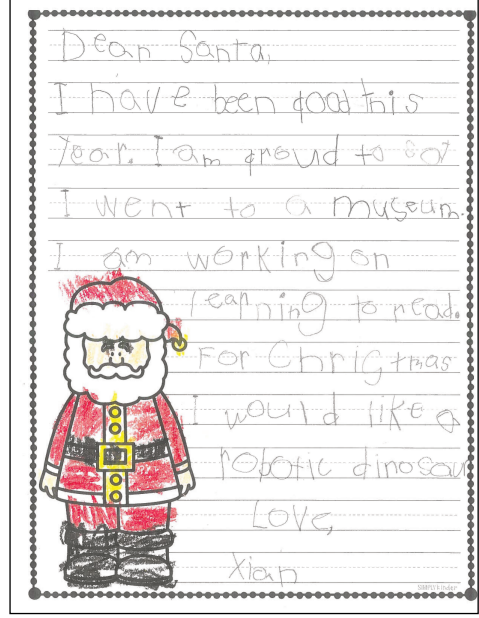 Dear Santa,
I have been good this
Year. I am proud to say
I went to a museum.
I am working on
learning to read.
For Christmas
I would like a
robotic dinosaur
Love,
Xian
SIMPLYkinder